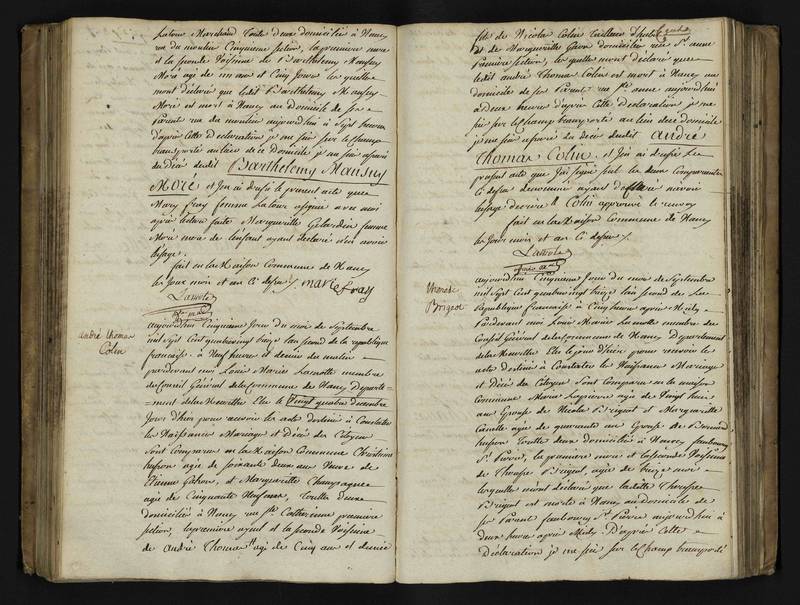 Latour Marchand toute deux domiciliées à Nancy
rue du moulin Cinquieme section, la premiere mere
et la seconde Voisine de Barthelemy Mansuy
Moré agé de un an et Cinq jours les quelles
mont déclaré que ledit Barthelemy Mansuy
Moré est mort à Nancy au Domicile de ses
Parent rue du moulin aujourd'hui à Sept heures
d'après cette Déclaration je me suis sur le champ
transporté au lieu de ce Domicile je me suis assuré
du Décè dudit Barthelemy Mansuy
Moré et j'en ai dressé le present acte que
Mary fray femme Latour a signée avec moi
après lecture faite Marguerite Gelardin femme
Moré mere de l'enfant ayant declaré n'en avoir
l'usage.
fait en la Maison Commune de Nancy
les jour mois et an Ci dessus /. marie fray
Lamote
andré thomas
Colin
aujourd'hui Cinquieme Jour du mois de Septembre
mil Sept Cent quatreving treize l'an second de la republique
française à Neuf heures et demie du matin
pardevant moi Louis Marie Lamotte membre
du Conseil Général de la Commune de Nancy Departe=
=ment de la Meurthe Elu le Vingt quatre décembre
Jours d'hier pour recevoir les acte destiné à Constater
les Naissances Mariages et Décè des Citoyens
Sont Comparues en la Maison Commune Christine
husson agée de soixante deux ans Veuve de
Etienne Gahon, et Marguerite Champagne
agée de Cinquante Neuf ans, toutes deux
domiciliées à Nancy rue Ste Catherine premiere
section, la premiere ayeul et la seconde Voisine
de André Thomas agé de Cinq ans et demie
fils de Nicolas Colin tailleur d'habit
et de Marguerite Gaon domiciliés rue Ste anne
Premiere section, les quelles mont déclaré que
ledit andré Thomas Colin est mort à Nancy au
domicile de ses Parent rue Ste anne aujourd'hui
à Deux heures d'après Cette Déclaration je me
suis sur le champ transporté au lieu de ce domicile
je me suis assuré du décè dudit André
Thomas Colin, et j'en ai dressé le
present acte que j'ai signé seul les deux Comparantes
Ci dessus denommées ayant déclaré n'avoir
l'usage d'ecrire Colin approuvé le renvoy
fait en la Maison Commune de Nancy
les Jours mois et an Ci dessus /.
Lamote
therese
Brigeot
aujourd'hui Cinquieme Jour du mois de Septembre
mil Sept Cent quatre vingt treize l'an second de la
Republique française à Cinq heures après Midy
Pardevant moi Louis Marie Lamotte membre du
Conseil Général de la Commune de Nancy Departement
de la Meurthe Elu le jour d'hier pour recevoir les
acte destiné à Constater les Naissance Mariage
et Décè des Citoyens Sont Comparues en la maison
Commune Marie Lapierre agée de Vingt huit
ans Epouse de Nicolas Brigeot et Marguerite
Camille agée de quarante ans Epouse de Bernard
husson toutes deux domiciliées à Nancy faubourg
St Pierre, la premiere mere et la seconde Voisine
de Therese Brigeot, agée de treize mois
lesquelles mont déclaré que ladite Therese
Brigeot est morte à Nancy au Domicile de
ses Parent faubourg St Pierre aujourd'hui à
deux heures après Midy D'après Cette
Déclaration je me suis sur le Champ transporté